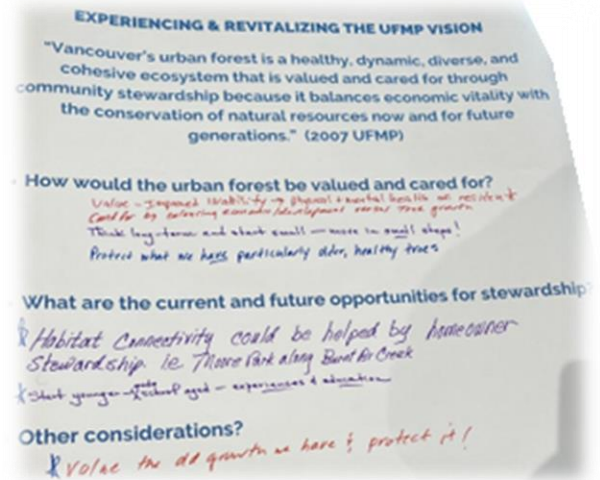 EXPERIENCING & REVITALIZING THE UFMP VISION
"Vancouver's urban forest is a healthy, dynamic, diverse, and
cohesive ecosystem that is valued and cared for through
community stewardship because it balances economic vitality with
the conservation of natural resources now and for future
generations." (2007 UFMP)
How would the urban forest be valued and cared for?
Value - Improved livability → physical + mental health of resident
Cared for by balancing economic/development versus tree growth
Think long-term and start small — move in small steps!
Protect what we have particularly older, healthy trees
What are the current and future opportunities for stewardship?
Habitat Connectivity could be helped by homeowner
Stewardship. ie Moore Park along Burnt Br Creek
Start younger - school aged - experiences & education
Other considerations?
Value the old growth we have & protect it!